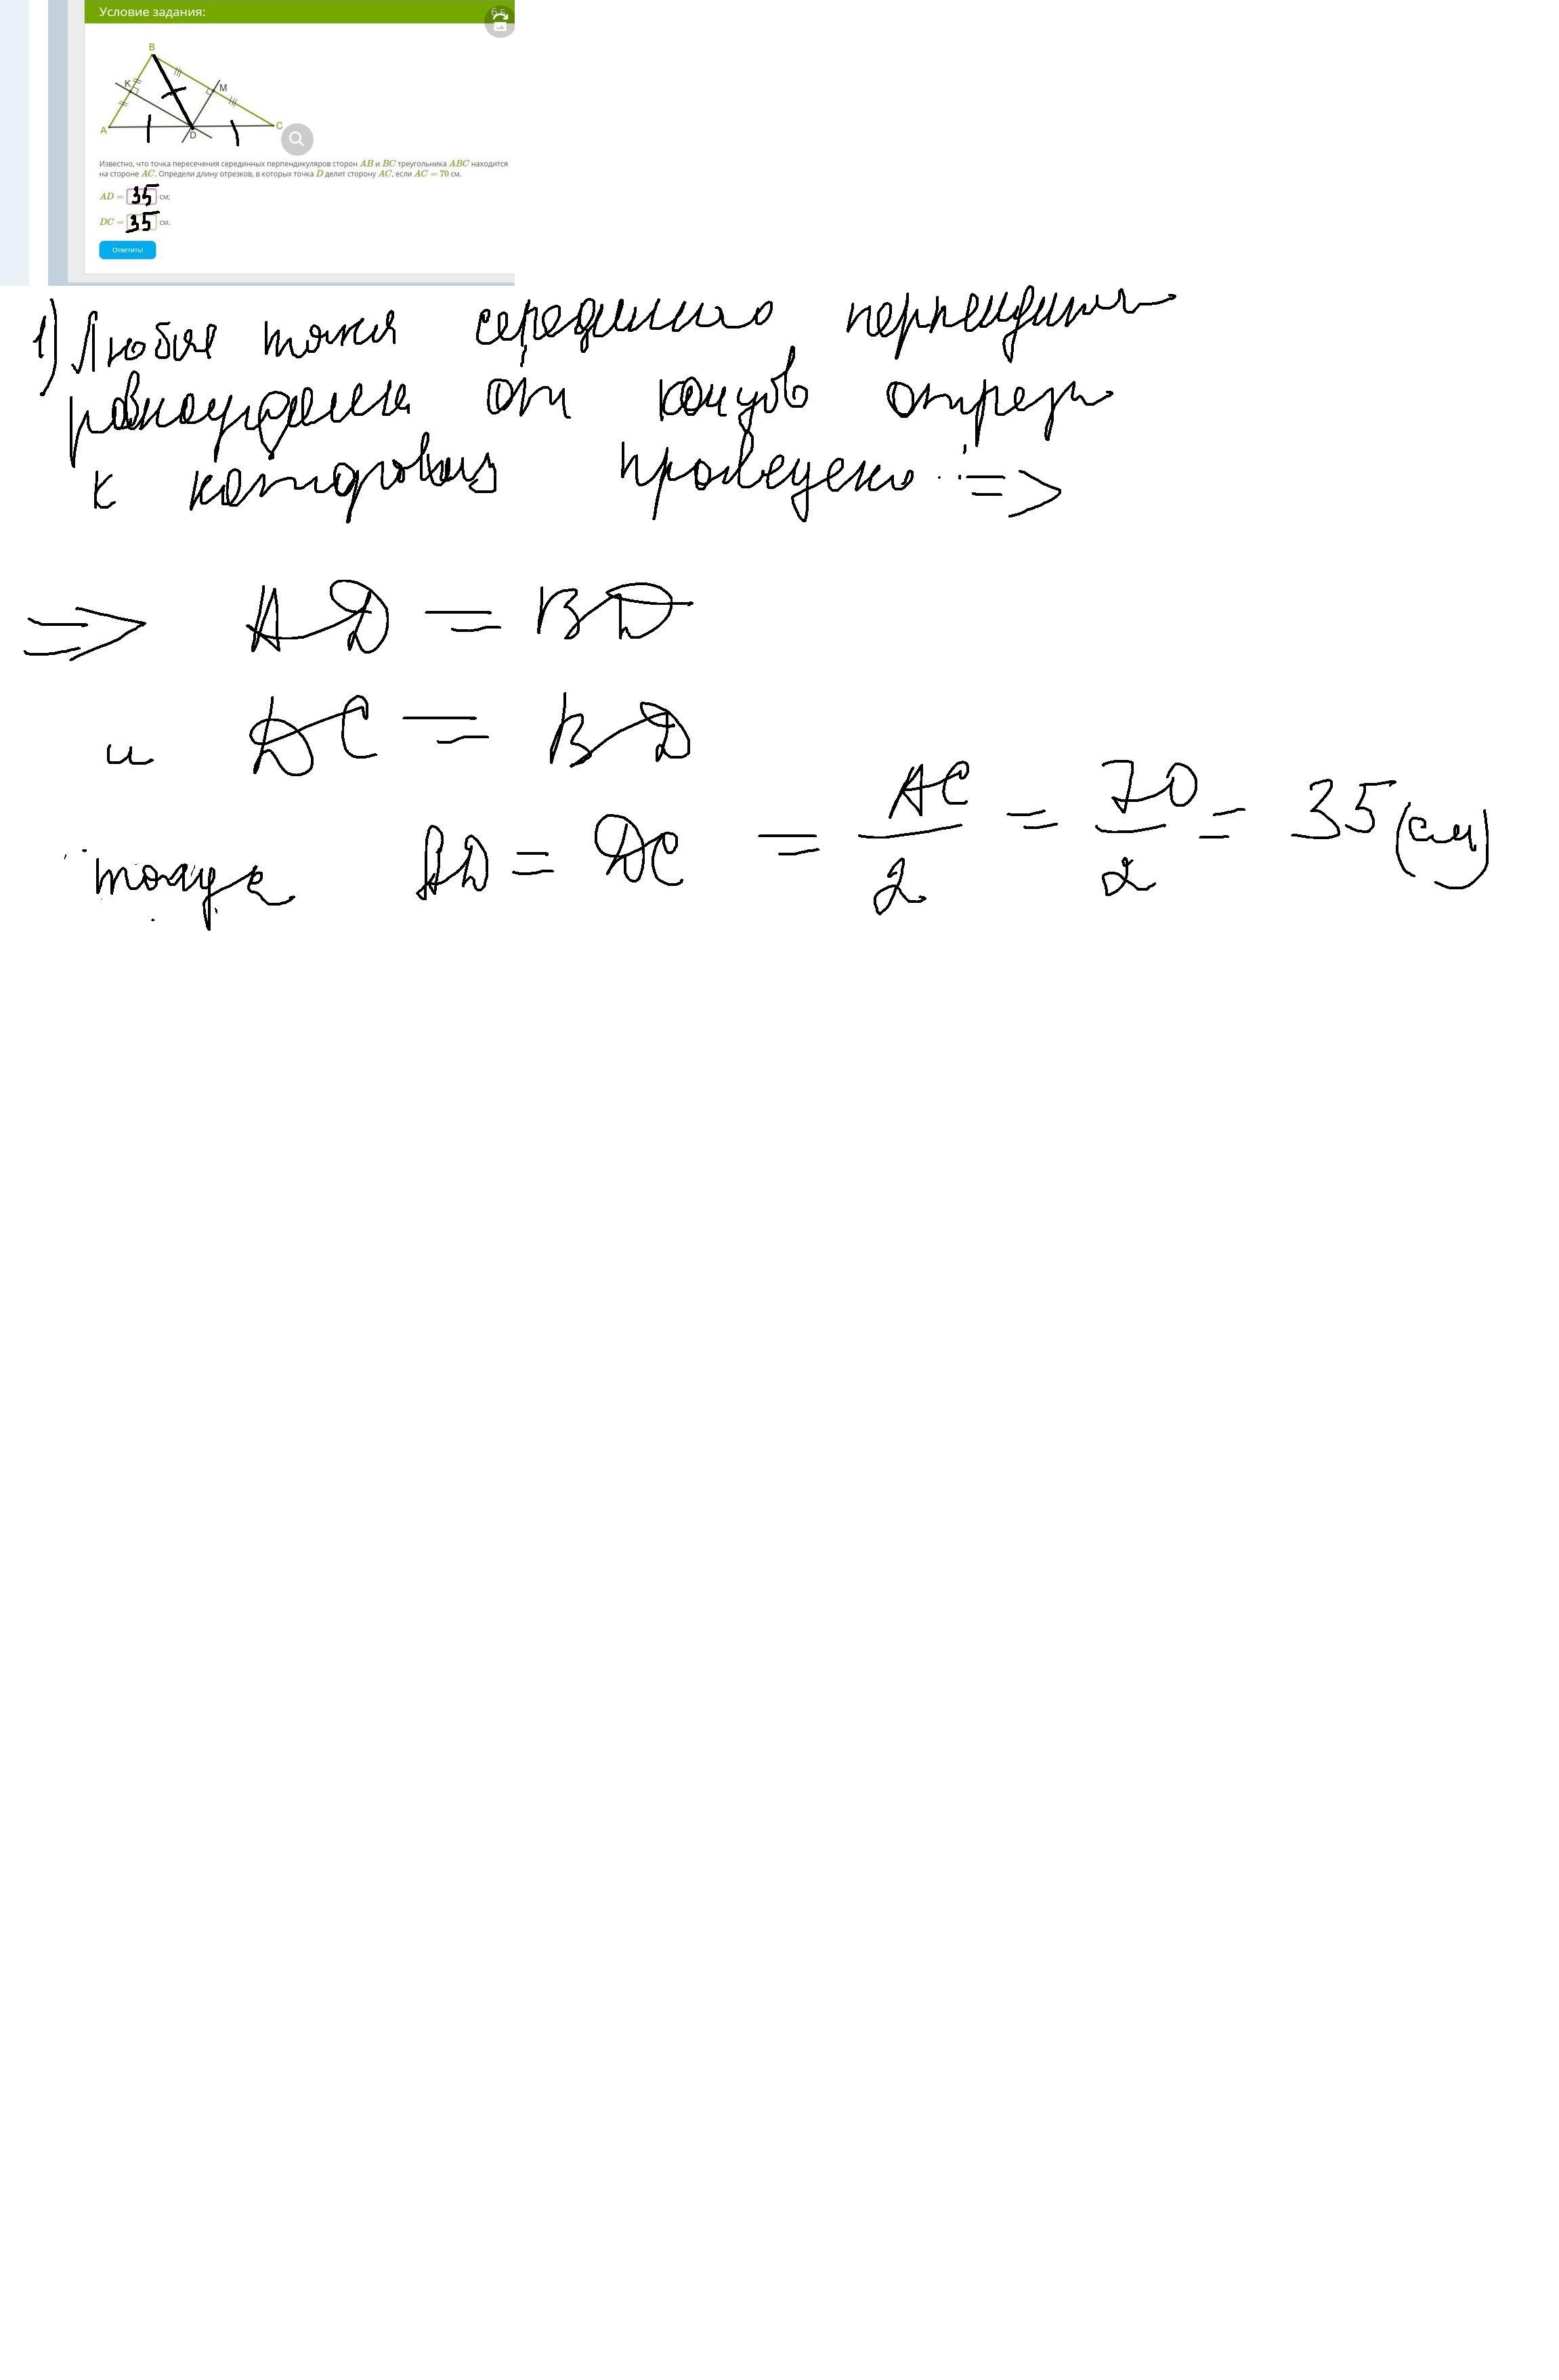 Условие задания:
6 Б.
B
K
M
A
D
C
Известно, что точка пересечения серединных перпендикуляров сторон AB и BC треугольника ABC находится
на стороне AC. Определи длину отрезков, в которых точка D делит сторону AC, если AC = 70 см.
AD = 35 см;
DC = 35 см.
Ответить!
1) Любая точка
от концов
к проведено =>
=> AD = BD
и DC = BD
тогда AD = DC = AC/2 = 70/2 = 35 (см)